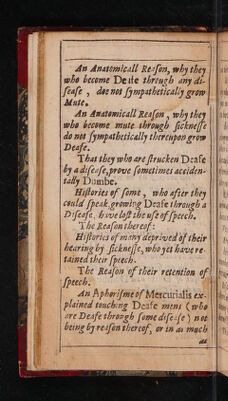 An Anatomicall Reason, why they
who become Deafe through any di-
sease, doe not sympathetically grow
Mute.
An Anatomicall Reason, why they
who become mute through sicknesse
do not sympathetically thereupon grow
Deafe.
That they who are strucken Deafe
by a disease, prove sometimes acciden-
tally Dumbe.
Histories of some, who after they
could speak, growing Deafe through a
Disease, have lost the use of speech.
The Reason thereof:
Histories of many deprived of their
hearing by sicknesse, who yet have re-
tained their speech.
The Reason of their retention of
speech.
An Aphorisme of Mercurialis ex-
plained touching Deafe mens (who
are Deafe through some disease) not
being by reason thereof, or in as much
as